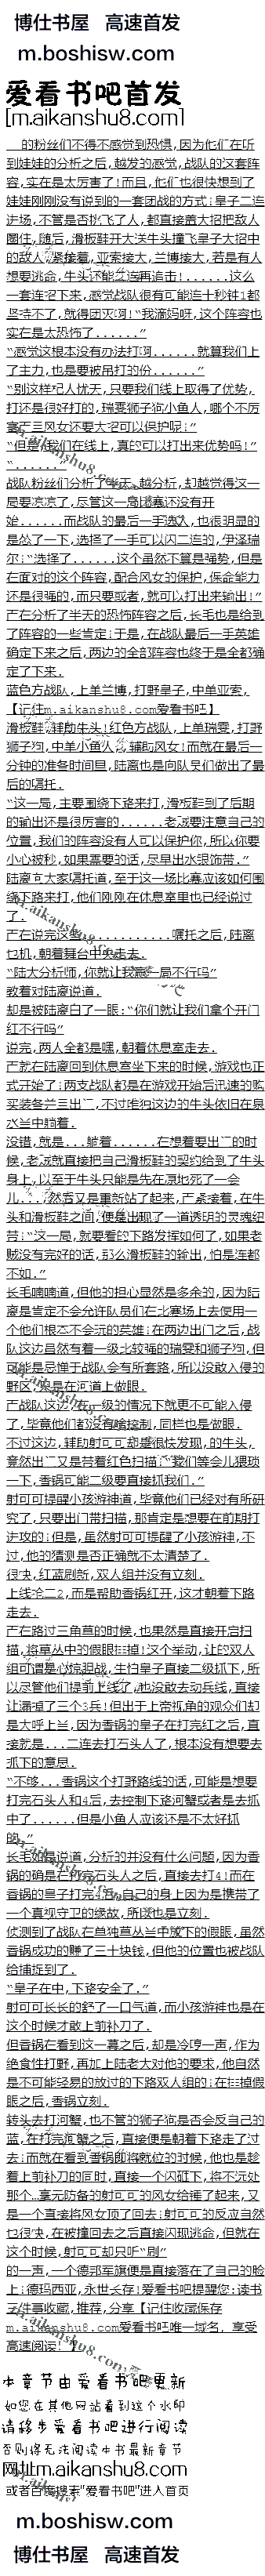 博仕书屋 高速首发
m.boshisw.com
爱看书吧首发
[m.aikanshu8.com]
的粉丝们不得不感觉到恐惧,因为他们在听
到娃娃的分析之后,越发的感觉,战队的这套阵
容,实在是太厉害了!而且,他们也很快想到了
娃娃刚刚没有说到的一套团战的方式:皇子二连
进场,不管是否挑飞了人,都直接盖大招把敌人
圈住,随后,滑板鞋开大送牛头撞飞皇子大招中
的敌人,紧接着,亚索接大,兰博接大,若是有人
想要逃命,牛头还能二连再追击!......这么
一套连招下来,感觉战队很有可能连十秒钟1都
坚持不了,就得团灭啊!"我滴妈呀,这个阵容也
实在是太恐怖了......"
"感觉这根本没有办法打啊......就算我们上
了主力,也是要被吊打的份......"
"别这样杞人忧天,只要我们线上取得了优势,
打还是很好打的,瑞雯狮子狗小鱼人,哪个不厉
害?三风女还要大招可以保护呢!"
"但是,我们在线上,真的可以打出来优势吗!"
"......"
战队粉丝们分析了半天,越分析,却越觉得这一
局要凉凉了,尽管这一局比赛还没有开
始......而战队的最后一手选人,也很明显的
是怂了一下,选择了一手可以闪二连的,伊泽瑞
尔:"选择了......这个虽然不算是强势,但是
在面对的这个阵容,配合风女的保护,保命能力
还是很强的,而只要或者,就可以打出来输出!"
在分析了半天的恐怖阵容之后,长毛也是给到
了阵容的一些肯定:于是,在战队最后一手英雄
确定下来之后,两边的全部阵容也终于是全都确
定了下来.
蓝色方战队,上单兰博,打野皇子,中单亚索,
【记住m.aikanshu8.com爱看书吧】
滑板鞋,辅助牛头!红色方战队,上单瑞雯,打野
狮子狗,中单小鱼人,,辅助风女!而就在最后一
分钟的准备时间里,陆离也是向队员们做出了最
后的嘱托.
"这一局,主要围绕下路来打,滑板鞋到了后期
的输出还是很厉害的......老贼要注意自己的
位置,我们的阵容没有人可以保护你,所以你要
小心被秒,如果需要的话,尽早出水银饰带."
陆离向大家嘱托道,至于这一场比赛应该如何围
绕下路来打,他们刚刚在休息室里也已经说过
了.
在说完这些...........嘱托之后,陆离
也机,朝着舞台中央走去.
"陆大分析师,你就让我赢一局不行吗"
教着对陆离说道.
却是被陆离白了一眼:"你们就让我们拿个开门
红不行吗"
说完,两人全都是嘿,朝着休息室走去.
就在陆离回到休息室坐下来的时候,游戏也正
式开始了:两支战队都是在游戏开始后迅速的购
买装备兰旦出门,不过唯独这边的牛头依旧在泉
水当中躺着.
没错,就是...躺着......在想着要出门的时
候,老贼就直接把自己滑板鞋的契约给到了牛头
身上,以至于牛头只能是先在原地死了一会
儿....然后又是重新站了起来,紧接着,在牛
头和滑板鞋之间,便是出现了一道透明的灵魂纽
带:"这一局,就要看的下路发挥如何了,如果老
贼没有完好的话,那么滑板鞋的输出,怕是连都
不如."
长毛喃喃道,但他的担心显然是多余的,因为陆
离是肯定不会允许队员们在比赛场上去使用一
个他们根本不会玩的英雄:在两边出门之后,战
队这边虽然有着一级比较强的瑞雯和狮子狗,但
可能是忌惮于战队会有所套路,所以没敢入侵的
野区,只是在河道上做眼.
战队这边,在一级的情况下就更不可能入侵
了,毕竟他们都没有啥控制,同样也是做眼.
不过这边,辅助射可可却是很快发现,的牛头,
竟然出门又是带着红色扫描:"我们等会儿猥琐
一下,香锅可能二级要直接抓我们."
射可可提醒小孩游神道,毕竟他们已经对有所研
究了,只要出门带扫描,那肯定是想要在前期打
进攻的:但是,虽然射可可提醒了小孩游神,不
过,他的猜测是否正确就不太清楚了.
很快,红蓝刷新,双人组并没有立刻.
上线抢二2,而是帮助香锅红开,这才朝着下路
走去.
在路过三角草的时候,也果然是直接开启扫
描,将草丛中的假眼排掉!这个举动,让的双人
组可谓是心惊胆战,生怕皇子直接二级抓下,所
以尽管他们提前上线了,也没敢去动兵线,直接
让漏掉了三个3兵!但出于上帝视角的观众们却
是大呼上当,因为香锅的皇子在打完红之后,直
接就是...二连去打石头人了,根本没有想要去
抓下的意思.
"不够...香锅这个打野路线的话,可能是想要
打完石头人和4后,去控制下路河蟹或者是去抓
中了......但是小鱼人应该还是不太好抓
的."
长毛如是说道,分析的并没有什么问题,因为香
锅的确是在打完石头人之后,直接去打4!而在
香锅的皇子打完4后,自己的身上因为是携带了
一个真视守卫的缘故,所以也是立刻.
侦测到了战队在单独草丛当中放下的假眼,虽然
香锅成功的赚了三十块钱,但他的位置也被战队
给捕捉到了.
"皇子在中,下路安全了."
射可可长长的舒了一口气道,而小孩游神也是在
这个时候才敢上前补刀了.
但香锅在看到这一幕之后,却是冷哼一声,作为
绝食性打野,再加上陆老大对他的要求,他自然
是不可能轻易的放过的下路双人组的:在排掉假
眼之后,香锅立刻.
转头去打河蟹,也不管的狮子狗是否会反自己的
蓝,在打完河蟹之后,直接便是朝着下路走了过
去:而就在看到香锅即将就位的时候,他也是趁
着上前补刀的同时,直接一个闪砸下,将不远处
那个…毫无防备的射可可的风女给锤了起来,又
是一个直接将风女顶了回去:射可可的反应当然
也很快,在被撞回去之后直接闪现逃命,但就在
这个时候,射可可却只听"刷"
的一声,一个德邦军旗便是直接落在了自己的脸
上:德玛西亚,永世长存!爱看书吧提醒您:读书
三件事收藏,推荐,分享【记住收藏保存
m.aikanshu8.com爱看书吧唯一域名,享受
高速阅读!】
本章节由爱看书吧更新
如您在其他网站看到这个水印
请移步爱看书吧进行阅读
否则将无法阅读本书最新章节
网址m.aikanshu8.com
或者百度搜索"爱看书吧"进入首页
m.boshisw.com
博仕书屋 高速首发